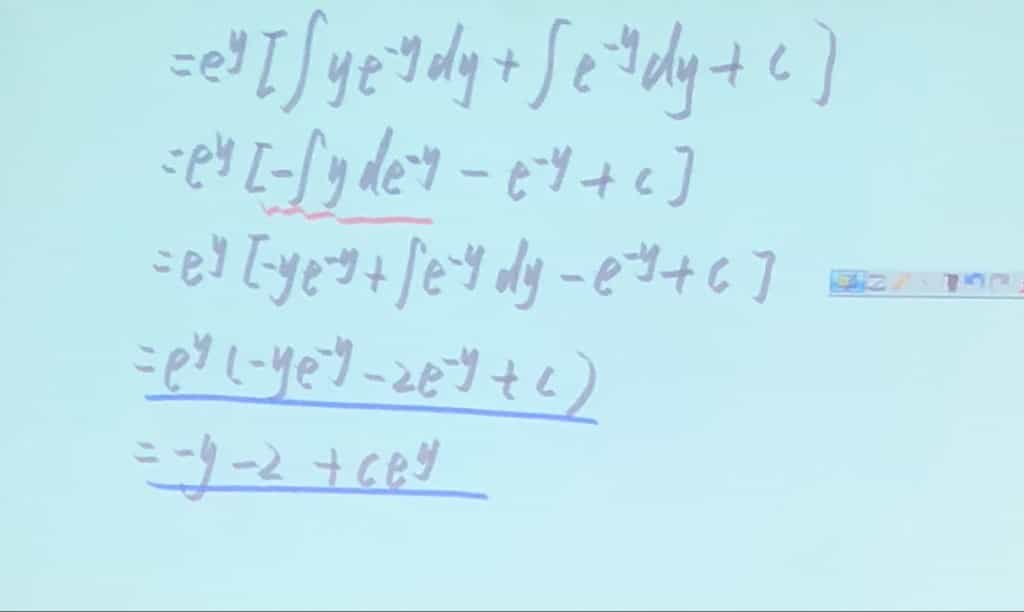 =e^y [∫ye^{-y}dy + ∫e^{-y}dy + c]
=e^y [-∫y de^{-y} - e^{-y} + c]
=e^y [-ye^{-y} + ∫e^{-y} dy - e^{-y} + c]
=e^y (-ye^{-y} - 2e^{-y} + c)
= -y - 2 + ce^y